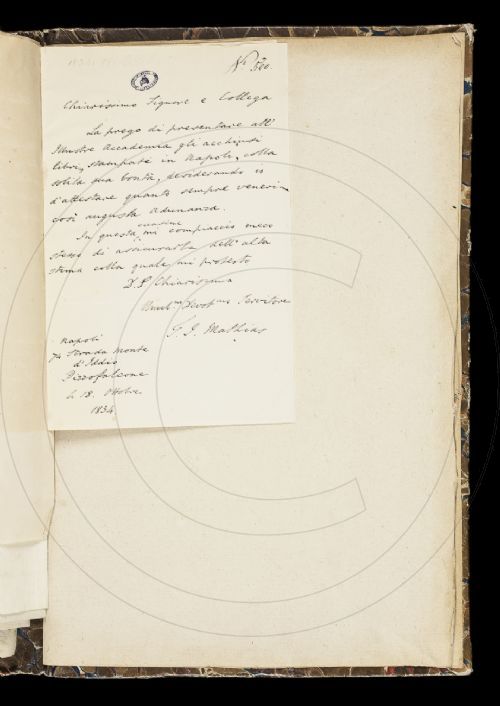 N.º 560.
Chiarissimo Signore e Collega
La prego di presentare all'
Illustre Accademia gli acchiusi
libri, stampati in Napoli, colla
solita sua bontà, desiderando io
d'attestare quanto sempre veneri
così augusta adunanza.
occasione
In questa mi compiaccio meco
stesso di assicurarla dell'alta
stima colla quale mi protesto
D. S. Chiarissima
Umil.mo Devot.mo Servitore
T. J. Mathias
Napoli
Strada Monte
d'Iddio
Pizzofalcone
li 18. Ottobre
1834